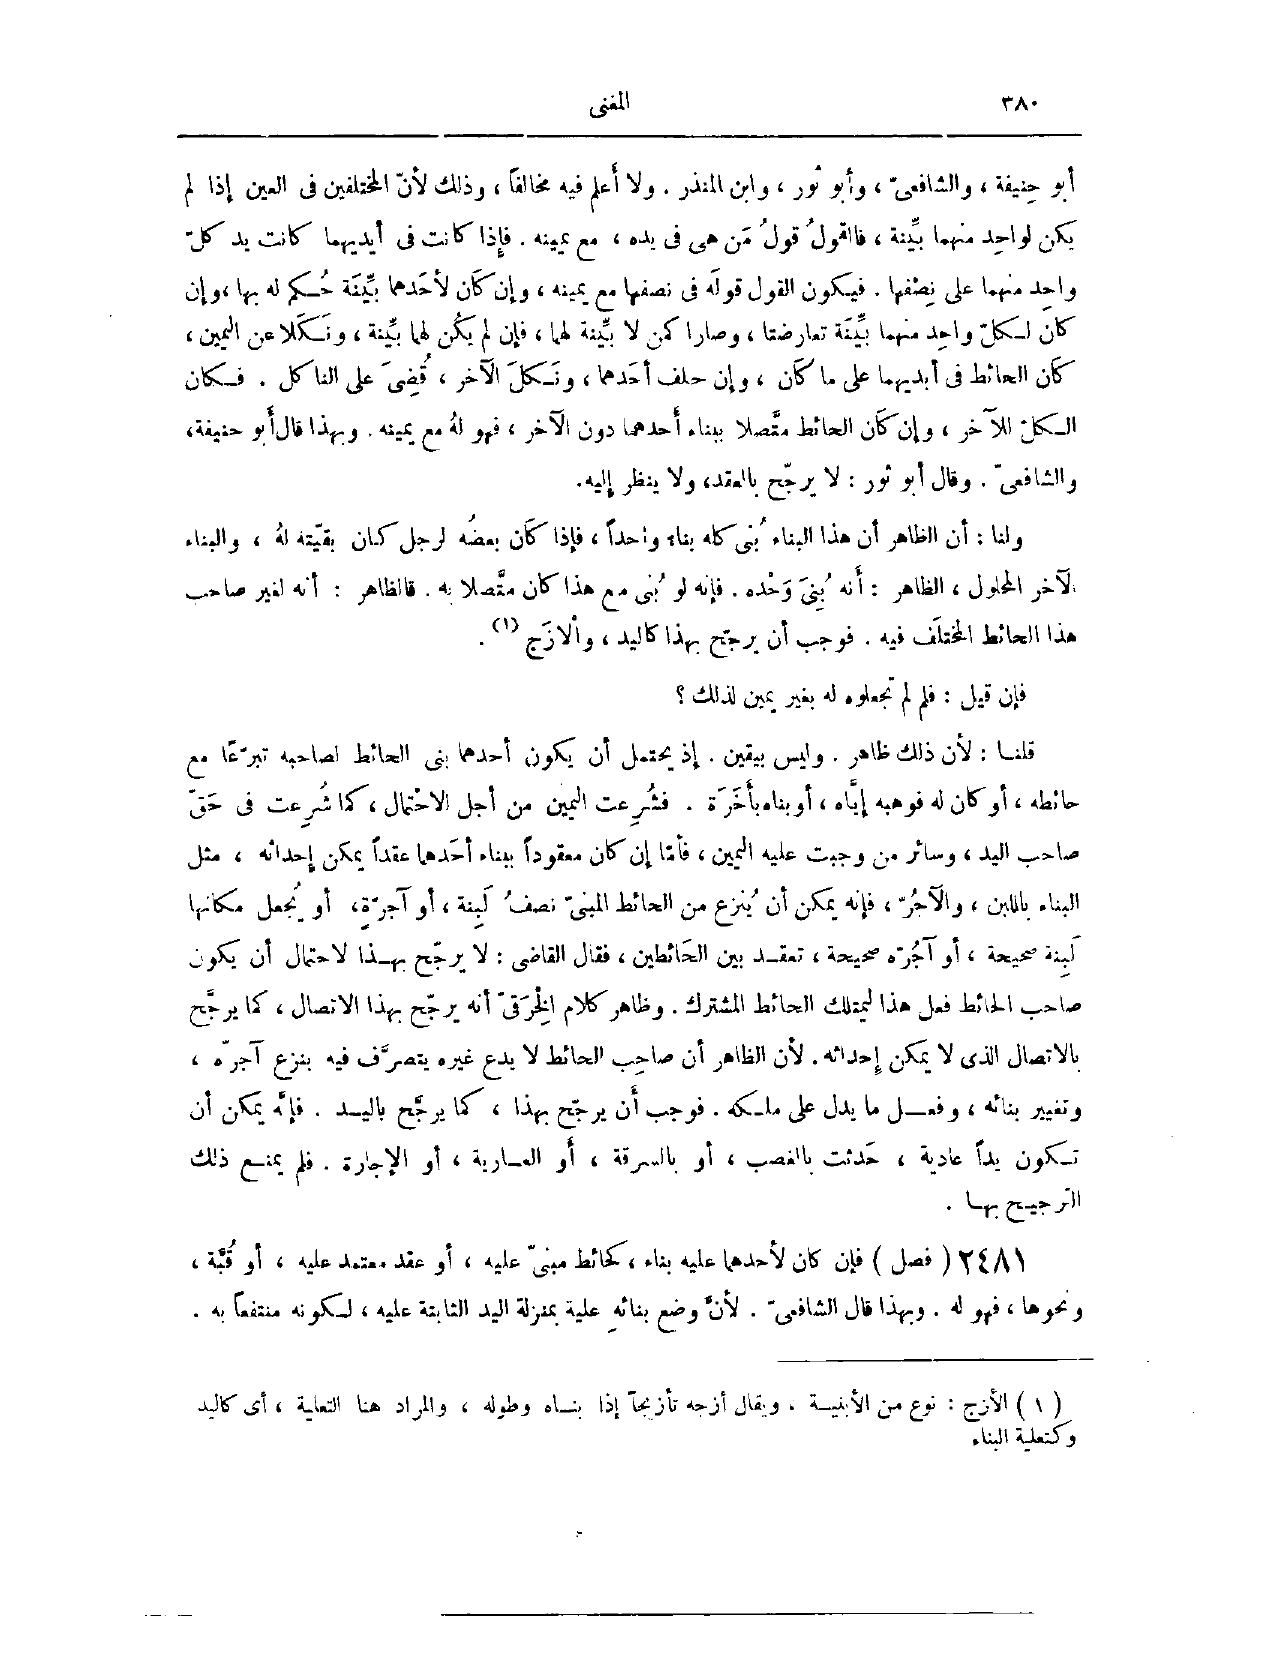 ٣٨٠
المغنى
أبو حنيفة ، والشافعىّ ، وأبو ثور ، وابن المنذر . ولا أعلم فيه مخالفاً ، وذلك لأنّ المختلفين فى العين إذا لم
يكن لواحِد منهما بيِّنة ، فالقولُ قولُ مَن هى فى يده ، مع يمينه . فإذا كانت فى أيديهما كانت يد كلّ
واحِد منهما على نِصْفها . فيكون القول قوله فى نصفها مع يمينه ، وإن كان لأحَدهما بيِّنَة حُكم له بها ،وإن
كان لكلّ واحِد منهما بيِّنَة تعارضتا ، وصارا كمن لا بيِّنة لهما ، فإن لم يكُن لهما بيِّنة ، ونَكَلا عن اليمين ،
كان الحائط فى أيديهما على ما كان ، وإن حلف أحَدهما ، ونَكلَ الآخر ، قُضِىَ على الناكل . فكان
الكلّ للآخر ، وإن كان الحائط متَّصلا ببناء أحدهما دون الآخر ، فهو لهُ مع يمينه . وبهذا قال أبو حنيفة،
والشافعىّ . وقال أبو ثور : لا يرجّح بالعقد، ولا ينظر إليه.
ولنا : أن الظاهر أن هذا البناء بُنى كله بناء واحداً ، فإذا كان بعضُه لرجل كان بقيّته لهُ ، والبناء
الآخر المحلول ، الظاهر : أنه بُنِىَ وَحْده . فإنه لو بُنى مع هذا كان متَّصلا به . فالظاهر : أنه لغير صاحب
هذا الحائط المختلَف فيه . فوجب أن يرجّح بهذا كاليد ، والأزَج (١) .
فإن قيل : فلم لم تجعلوه له بغير يمين لذلك ؟
قلنا : لأن ذلك ظاهر . وليس بيقين . إذ يحتمل أن يكون أحدهما بنى الحائط لصاحبه تبرّعًا مع
حائطه ، أو كان له فوهبه إيَّاه ، أو بناه بأُجْرَة . فشُرِعت اليمين من أجل الاحْتمال ، كما شُرِعت فى حَقّ
صاحب اليد ، وسائر من وجبت عليه اليمين ، فأمّا إن كان معقوداً ببناء أحَدهما عقداً يمكن إحداثه ، مثل
البناء باللبن ، والآجُرّ ، فإنه يمكن أن يُنزع من الحائط المبنىّ نصفُ لَبِنة ، أو آجرّة، أو يُجعل مكانها
لَبِنة صحيحة ، أو آجُرّه صحيحة ، تعقد بين الحَائطين ، فقال القاضى : لا يرجّح بهذا لاحتمال أن يكون
صاحب الحائط فعل هذا ليمتلك الحائط المشترك . وظاهر كلام الخِرَقىّ أنه يرجّح بهذا الاتصال ، كما يرجَّح
بالاتصال الذى لا يمكن إحداثه . لأن الظاهر أن صاحِب الحائط لا يدع غيره يتصرَّف فيه بنزع آجرّه ،
وتغيير بنائه ، وفعل ما يدل على ملكه . فوجب أن يرجّح بهذا ، كما يرجَّح باليد . فإنَّه يمكن أن
تكون يداً عادية ، حَدثت بالغصب ، أو بالسرقة ، أو العارية ، أو الإجارة . فلم يمنع ذلك
الترجيح بها .
٢٤٨١ ( فصل ) فإن كان لأحدهما عليه بناء ، كحائط مبنىّ عليه ، أو عقد معتمد عليه ، أو قُبَّة ،
ونحوها ، فهو له . وبهذا قال الشافعىّ . لأنَّ وضع بنائهِ علية بمنزلة اليد الثابتة عليه ، لكونه منتفعاً به .
( ١ ) الأزج : نوع من الأبنية . ويقال أزجه تأزيجاً إذا بناه وطوله ، والمراد هنا التعلية ، أى كاليد
وكتعلية البناء